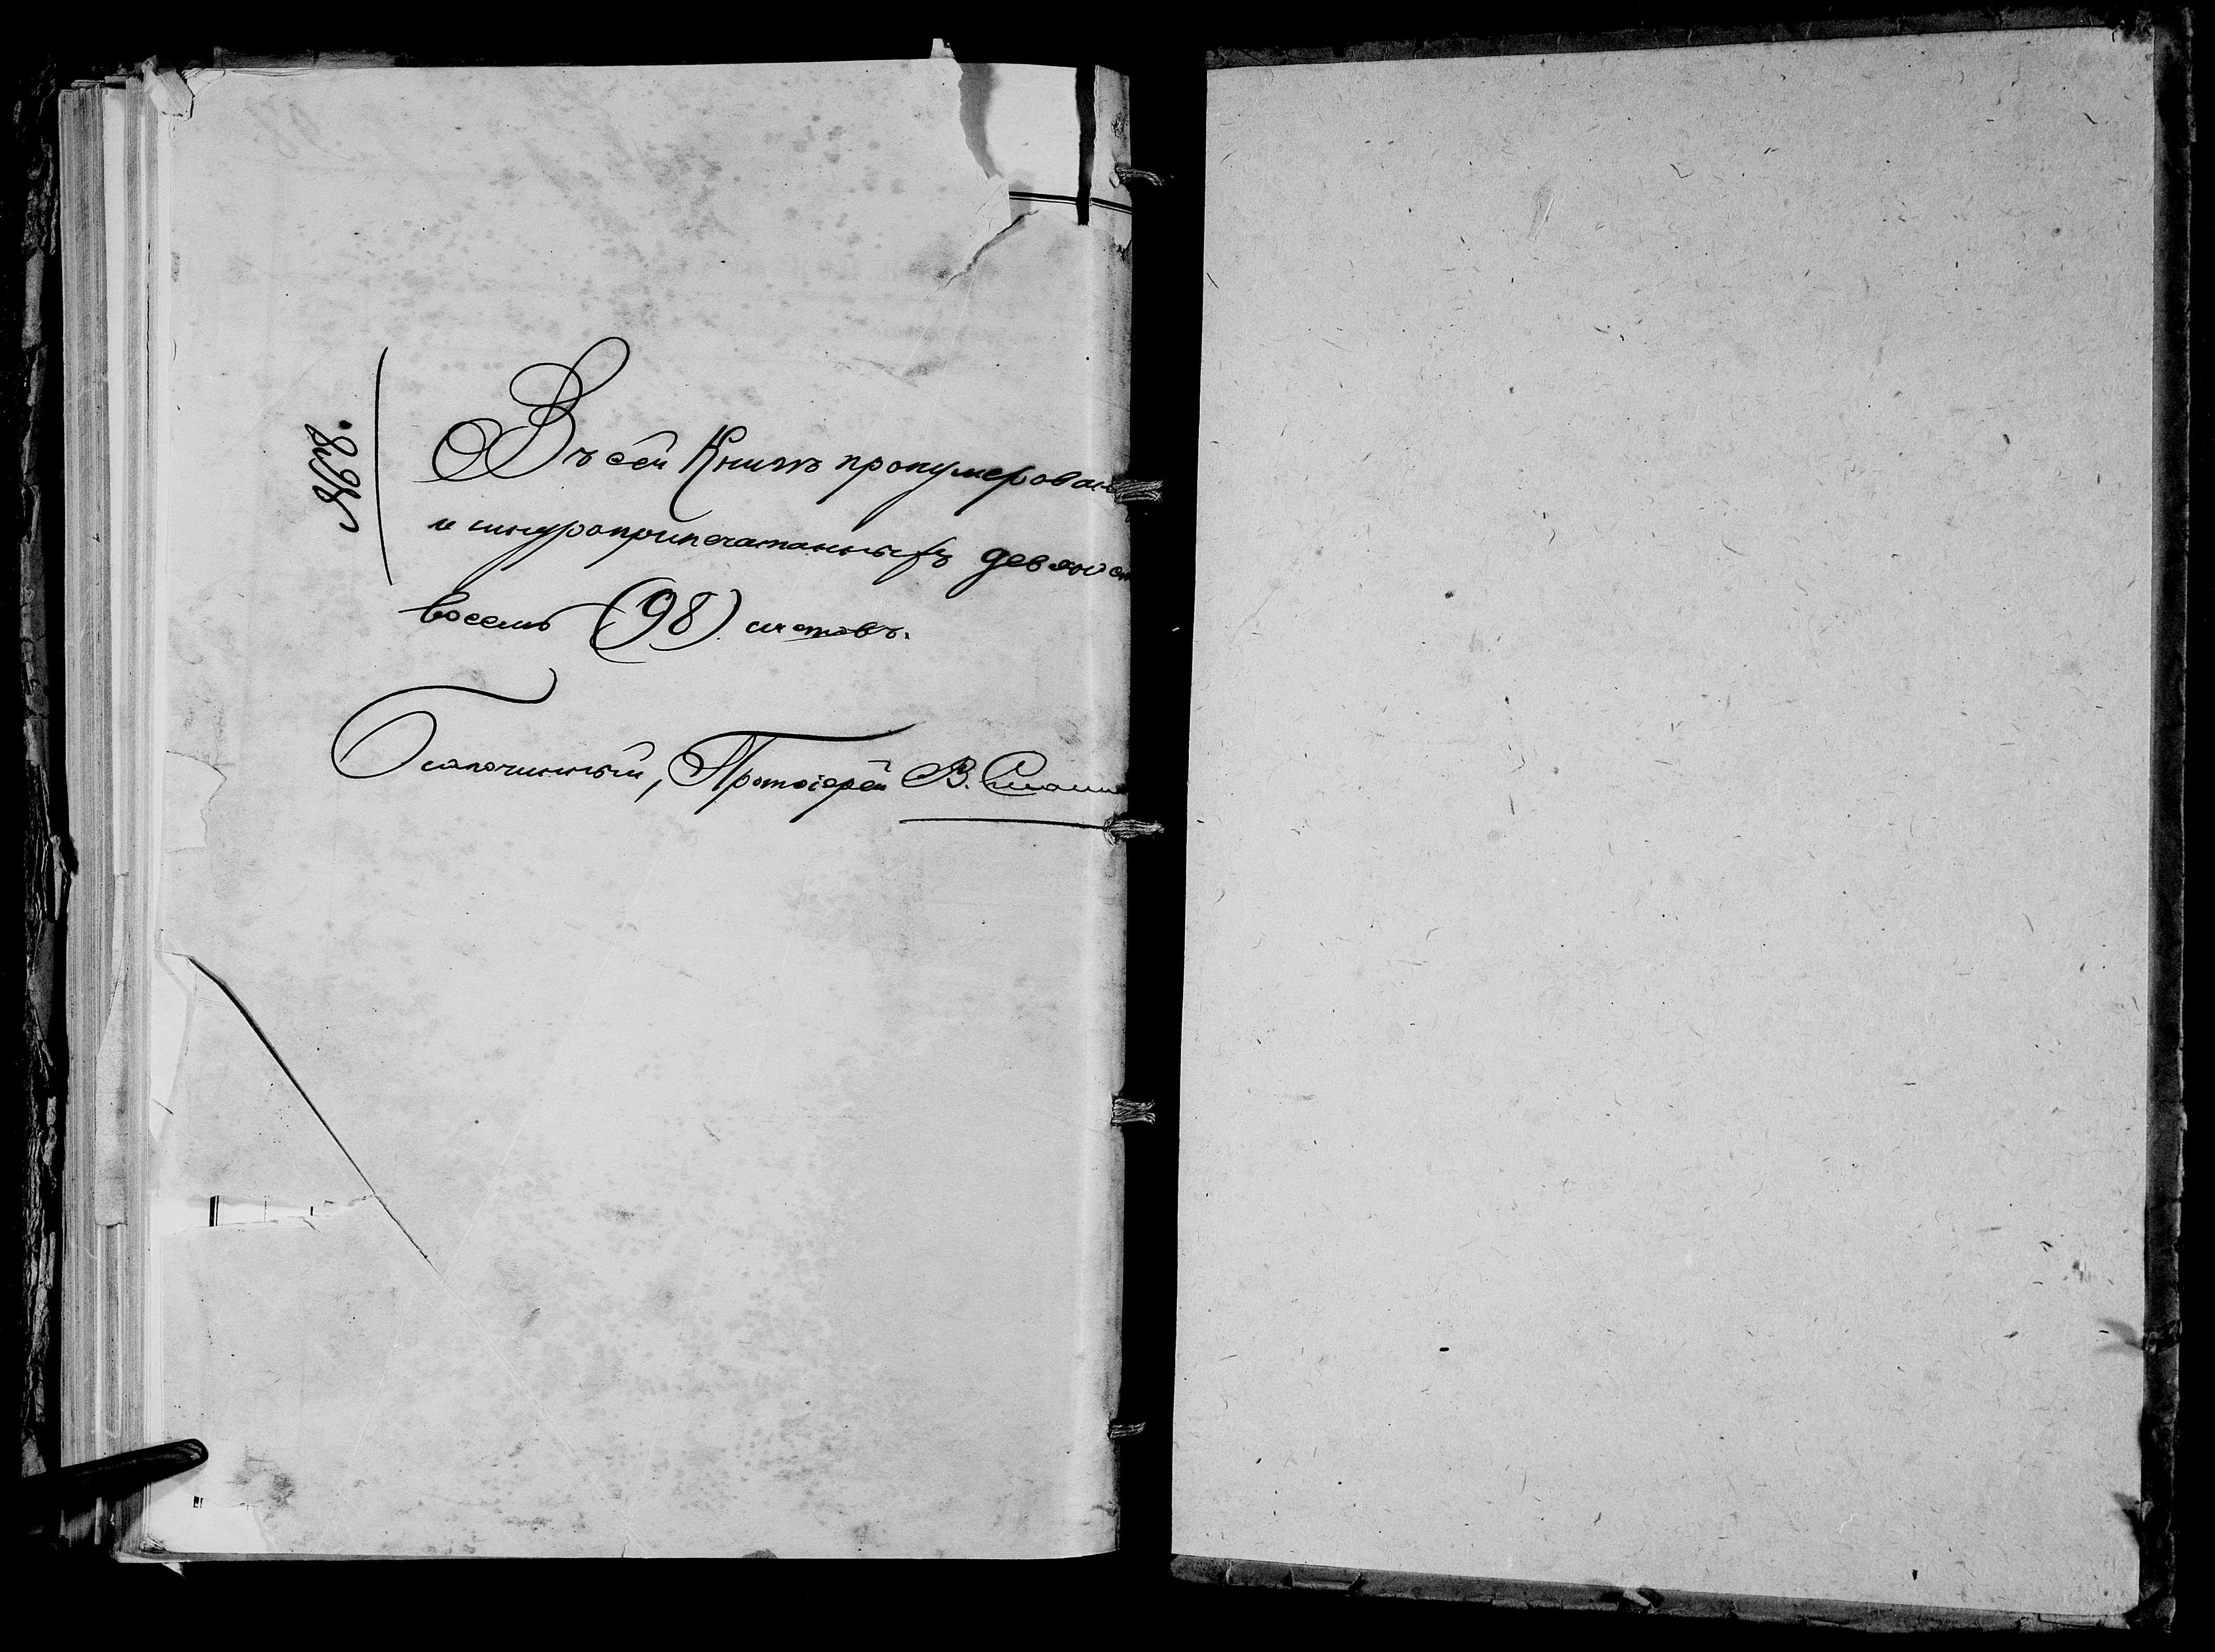 № 28.
Въ сей Книгѣ пронумерован
и шнуроприпечатанныхъ девяност
восемь (98) листовъ.
Благочинный, Протоіерей В.